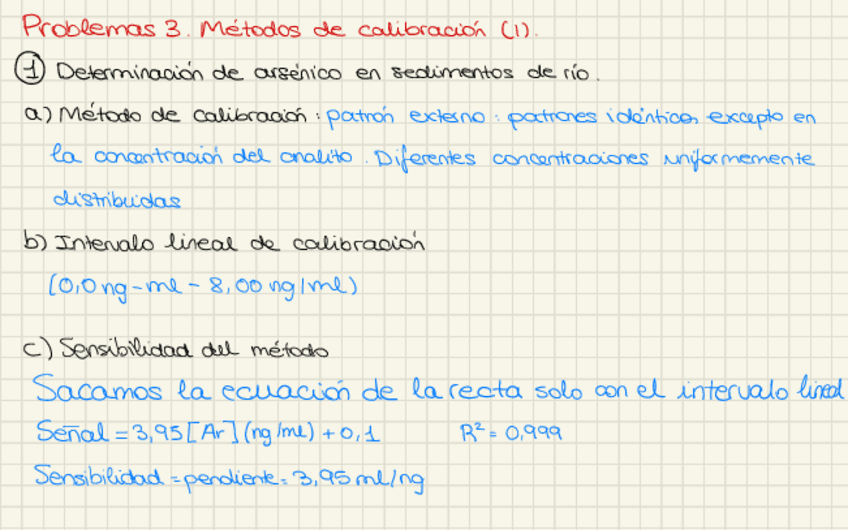 Problemas 3. Métodos de calibración (1).
① Determinación de arsénico en sedimentos de río.
a) Método de calibración: patrón externo: patrones idénticos excepto en
la concentración del analito. Diferentes concentraciones uniformemente
distribuidas
b) Intervalo lineal de calibración
(0,0 ng-ml - 8,00 ng/ml)
c) Sensibilidad del método
Sacamos la ecuación de la recta solo con el intervalo lineal
Señal = 3,95 [Ar] (ng/ml) + 0,1 R² = 0,999
Sensibilidad = pendiente = 3,95 ml/ng